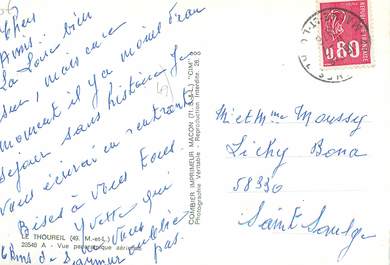 Chers
Amis..
La Loire bien
sur, mais en ce
moment il y a moins d'eau
séjour sans histoire Je
vous écrirai en rentrant
Bises à vous tous.
Yvette qui
ne vous oublie
pas.
LE THOUREIL (49. M.-et-L.)
28540 A - Vue panoramique aérienne
COMBIER IMPRIMEUR MACON (71. S.-&-L.) "CIM"
Photographie Véritable - Reproduction Interdite.
0,80
M. et Mme Moussy
Licky Bona
58330
Saint Saulge